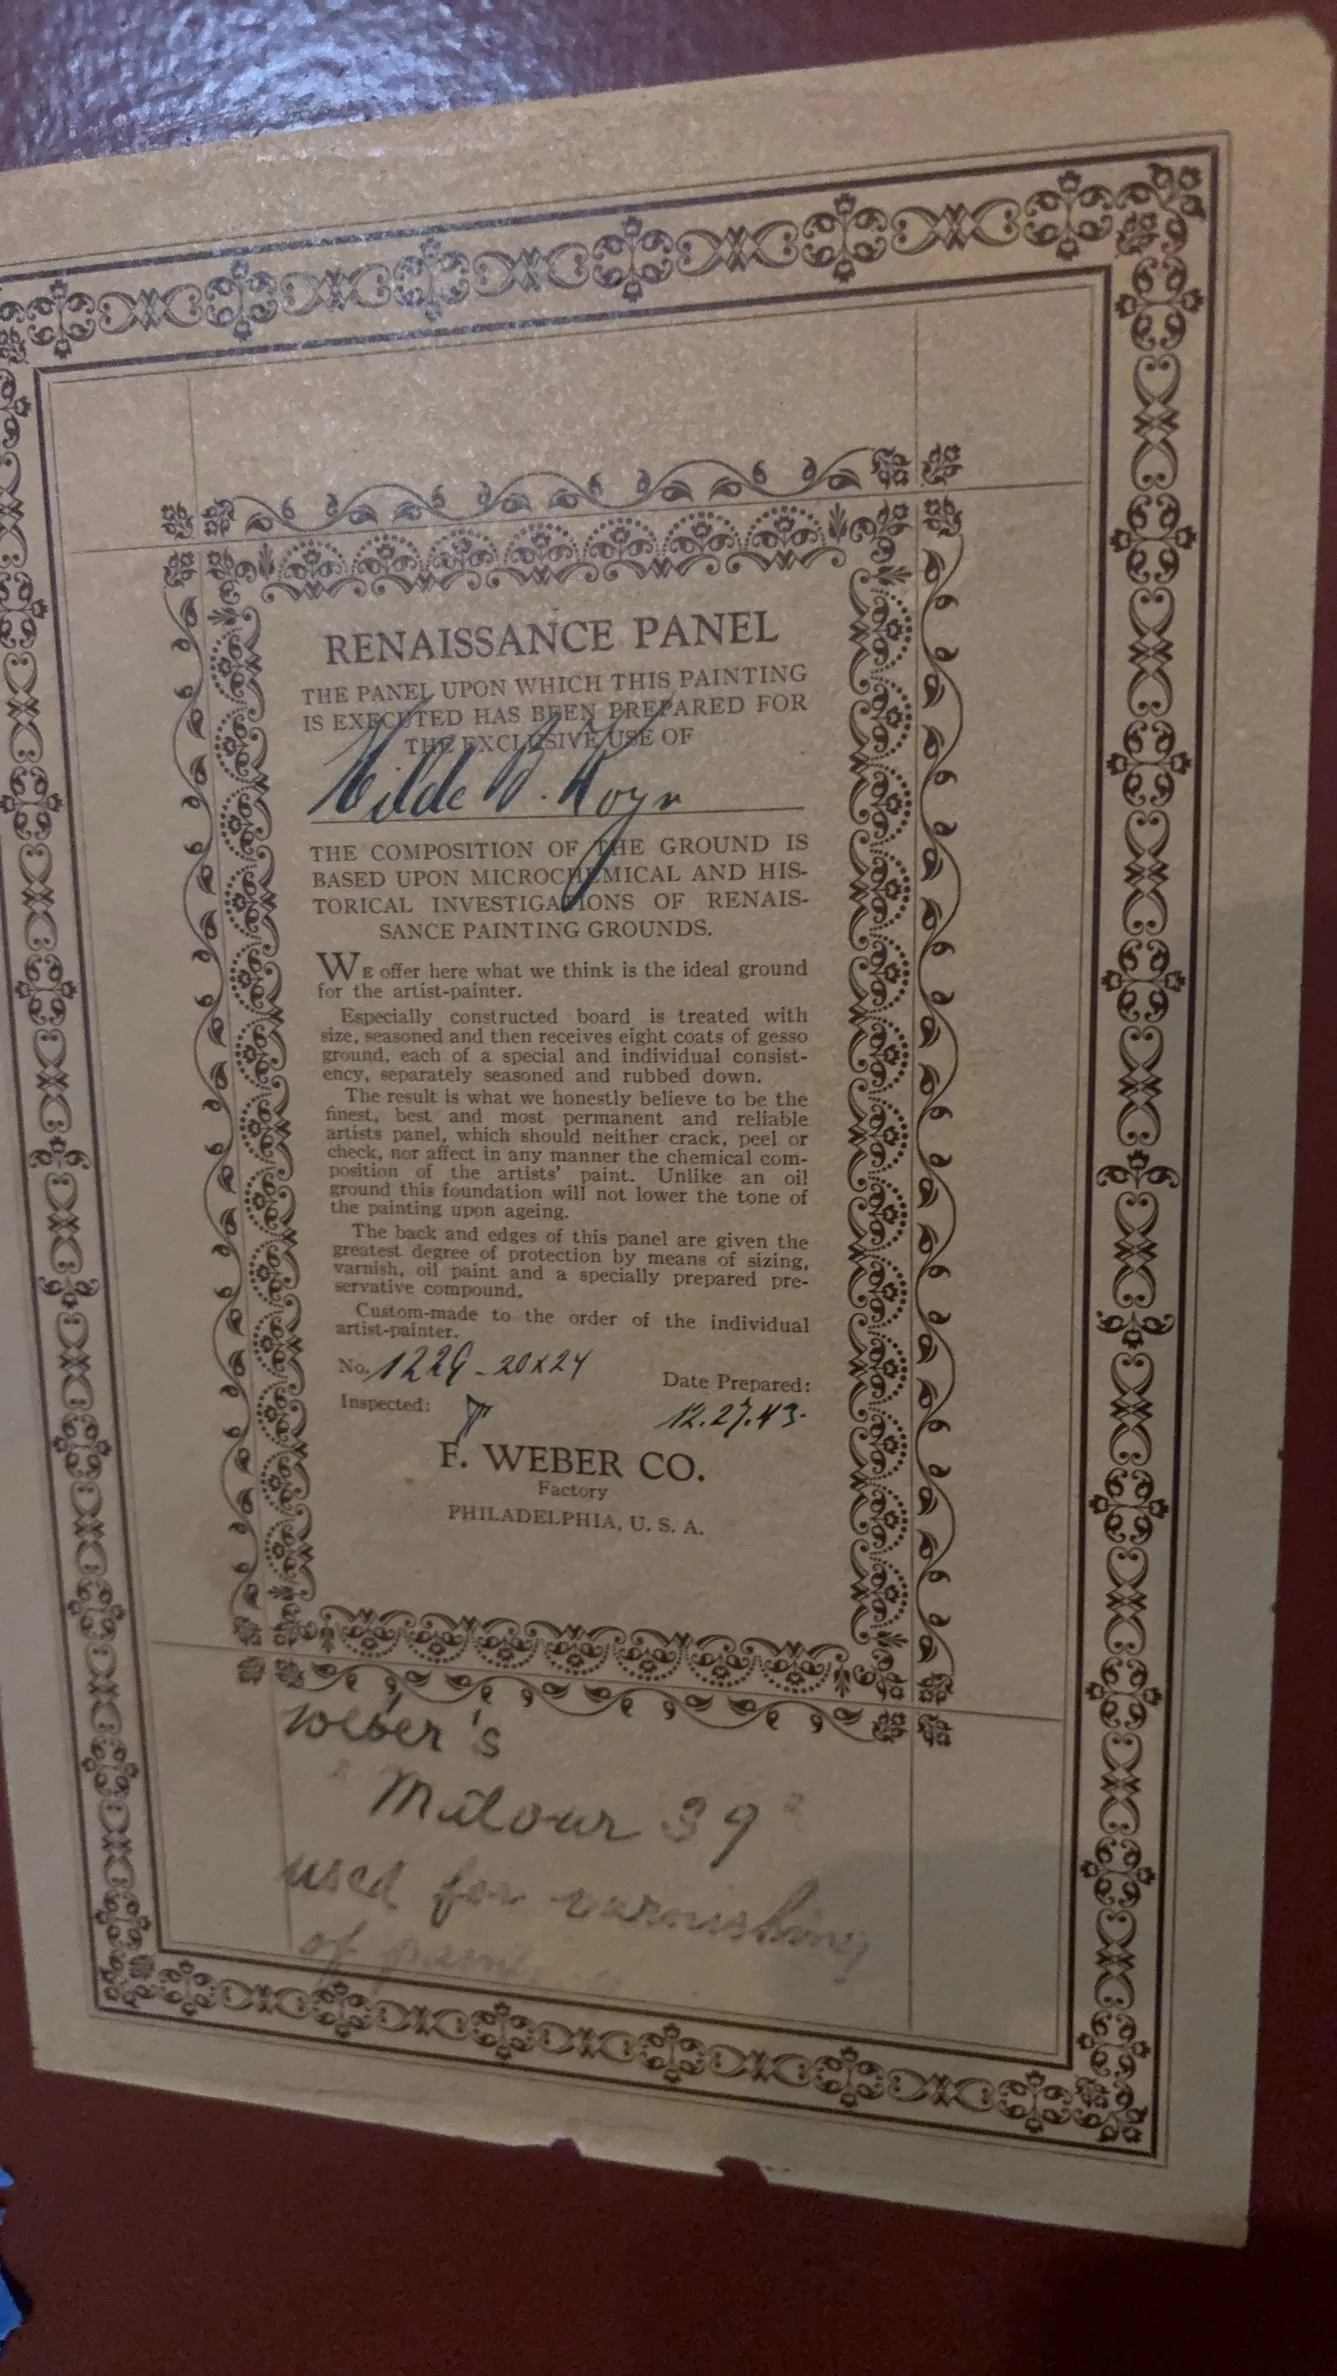 RENAISSANCE PANEL
THE PANEL UPON WHICH THIS PAINTING
IS EXECUTED HAS BEEN PREPARED FOR
THE EXCLUSIVE USE OF
Hilde B. Kayn
THE COMPOSITION OF THE GROUND IS
BASED UPON MICROCHEMICAL AND HIS-
TORICAL INVESTIGATIONS OF RENAIS-
SANCE PAINTING GROUNDS.
WE offer here what we think is the ideal ground
for the artist-painter.
Especially constructed board is treated with
size, seasoned and then receives eight coats of gesso
ground, each of a special and individual consist-
ency, separately seasoned and rubbed down.
The result is what we honestly believe to be the
finest, best and most permanent and reliable
artists panel, which should neither crack, peel or
check, nor affect in any manner the chemical com-
position of the artists' paint. Unlike an oil
ground this foundation will not lower the tone of
the painting upon ageing.
The back and edges of this panel are given the
greatest degree of protection by means of sizing,
varnish, oil paint and a specially prepared pre-
servative compound.
Custom-made to the order of the individual
artist-painter.
No. 1229-20x24
Date Prepared:
Inspected:
12.27.43.
F. WEBER CO.
Factory
PHILADELPHIA, U. S. A.
Weber's
39"
used for varnishing
of